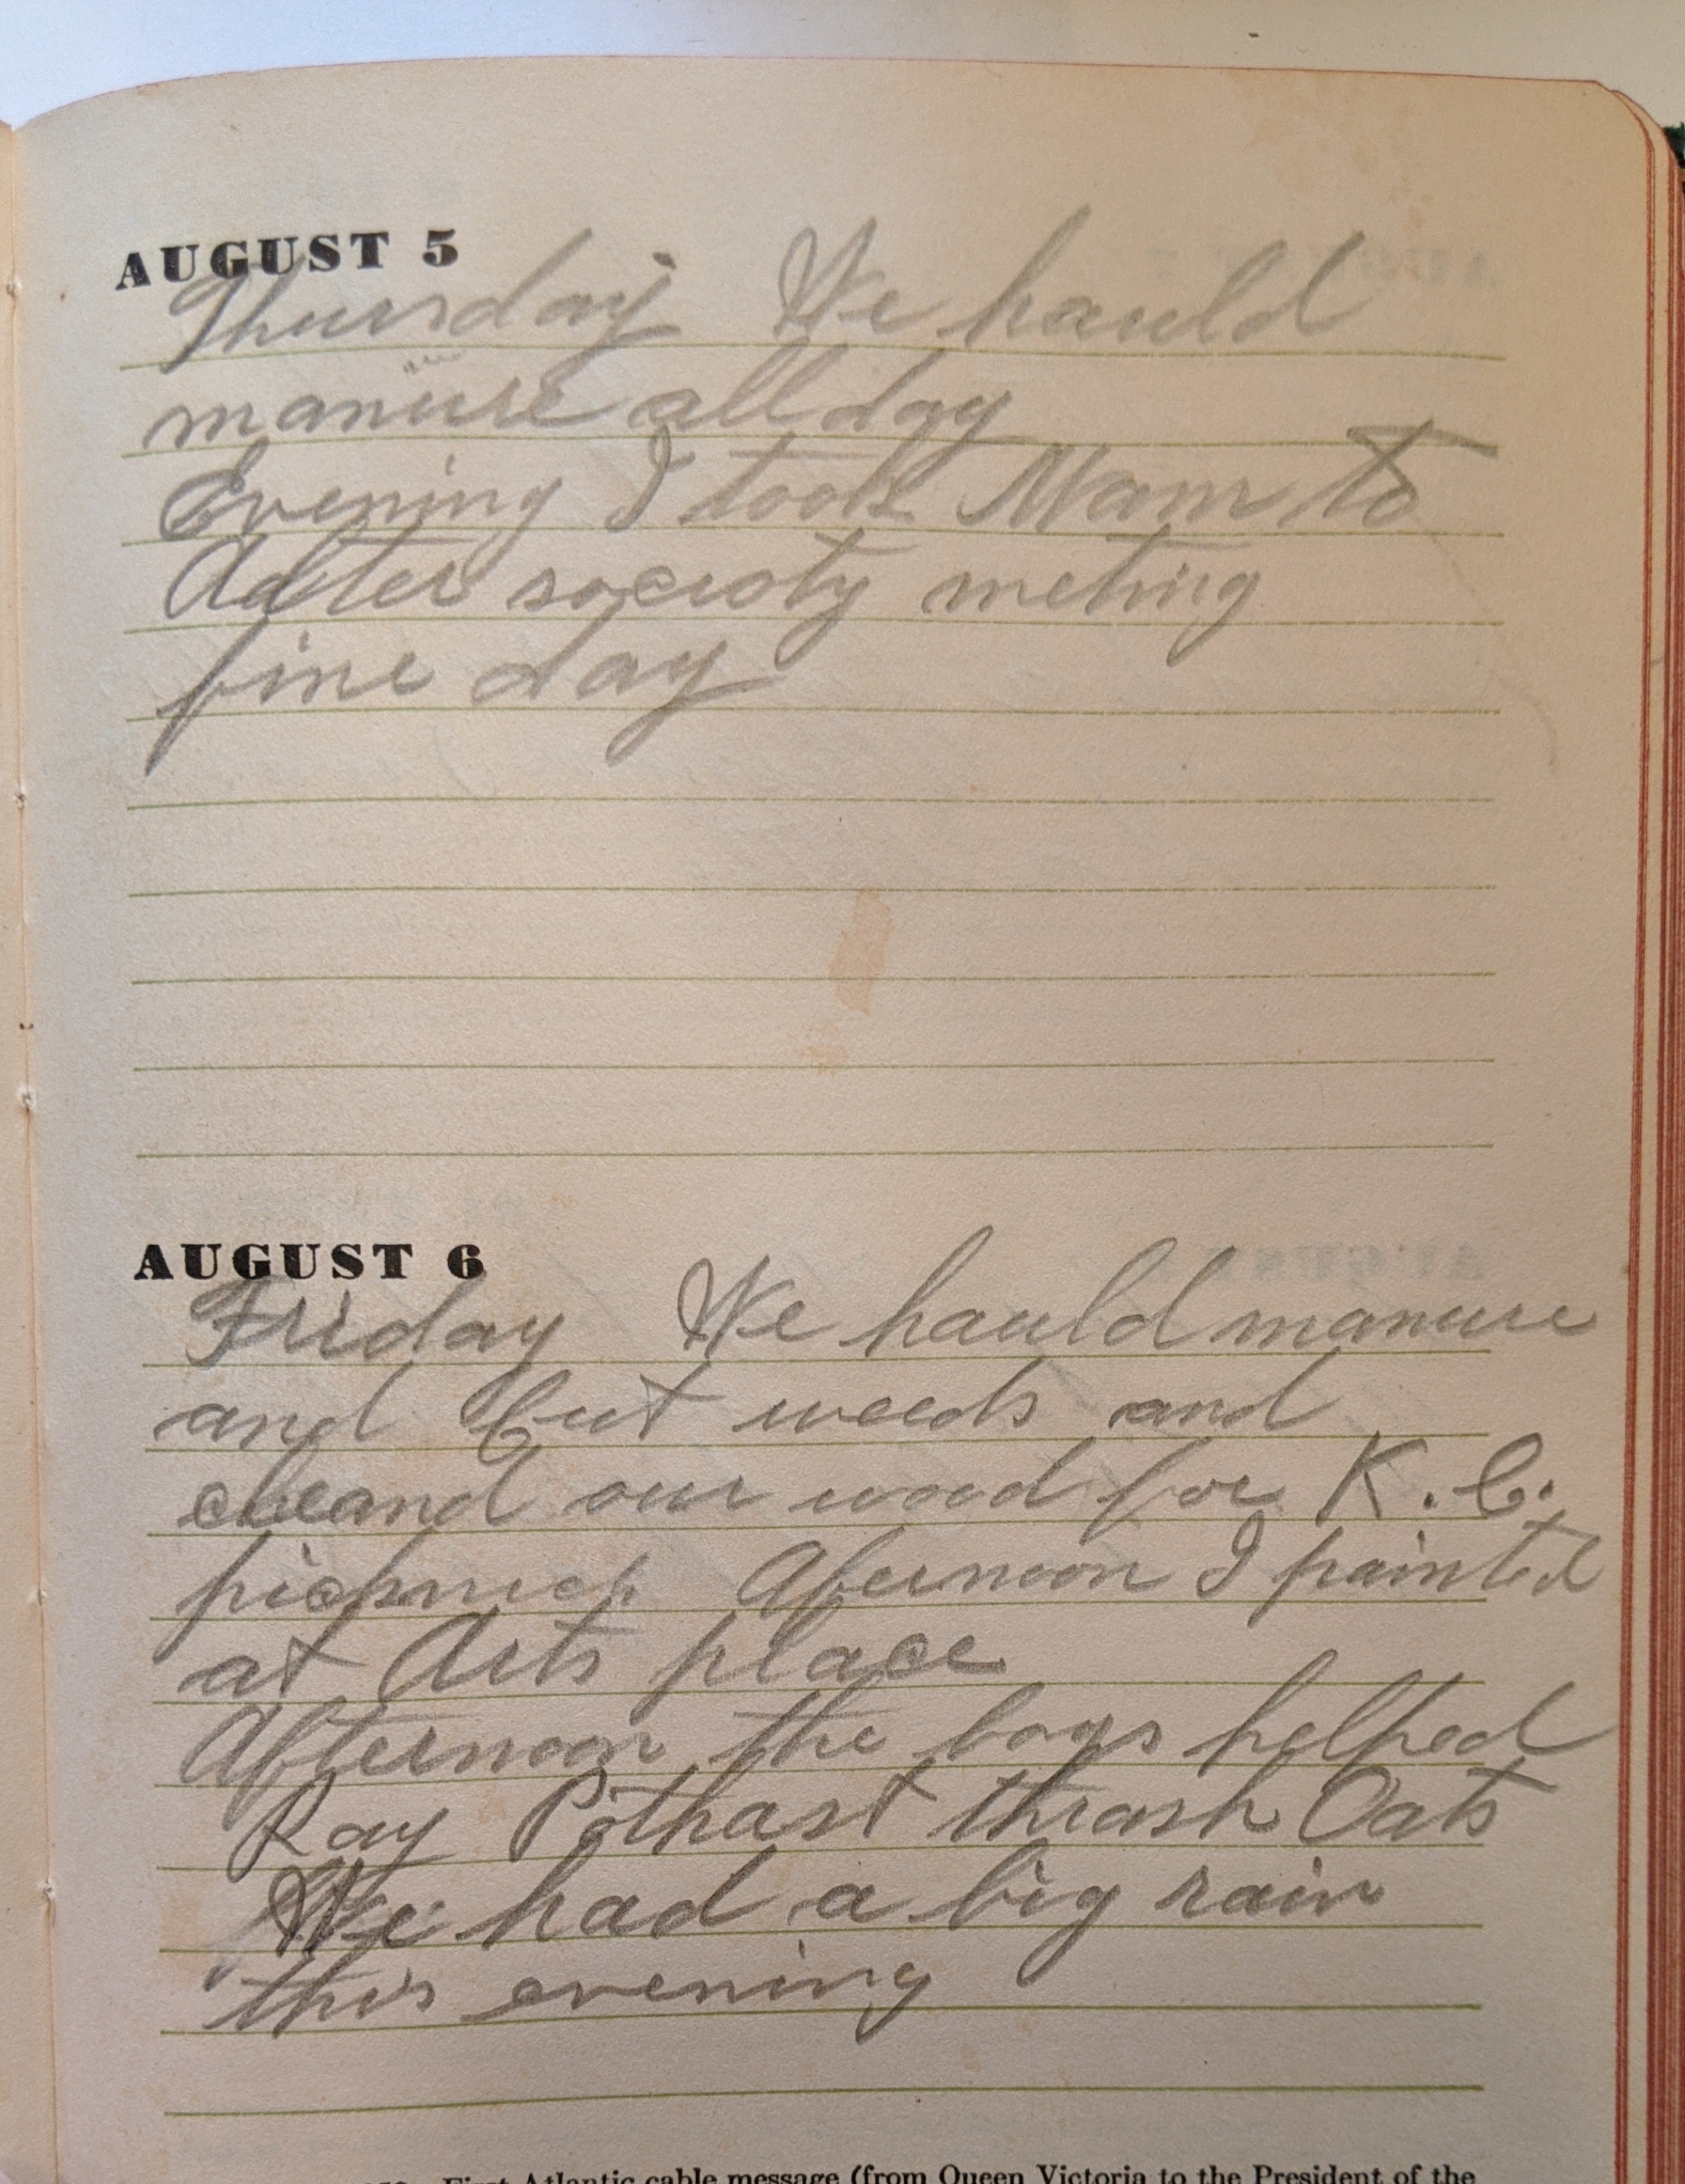 AUGUST 5
Thursday We hauld
manure all day
Evening I took Mam to
Adlter socioty meting
fine day
AUGUST 6
Friday We hauld manure
and cut weeds and
cleand our wood for K.C.
picknick Afernoon I painted
at Arts place
Afternoon the boys helped
Ray Pothast thrash Oats
We had a big rain
this evening
First Atlantic cable message (from Queen Victoria to the President of the